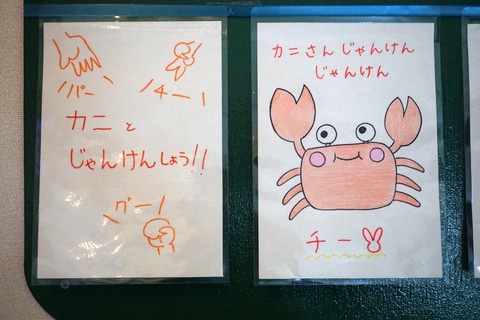 パー
チー
カニと
じゃんけんしょう!!
グー
カニさんじゃんけん
じゃんけん
チー